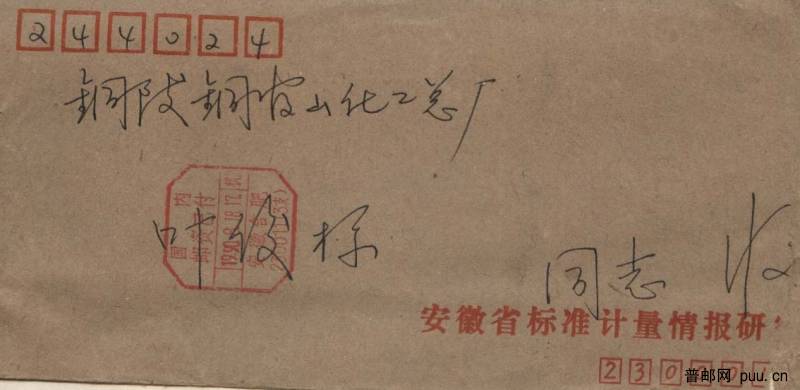 244024
铜陵铜官山化工总厂
国内
邮资已付
1990.9.18.12
安徽合肥
叶设标
同志 收
安徽省标准计量情报研
230001
普邮网 puu.cn